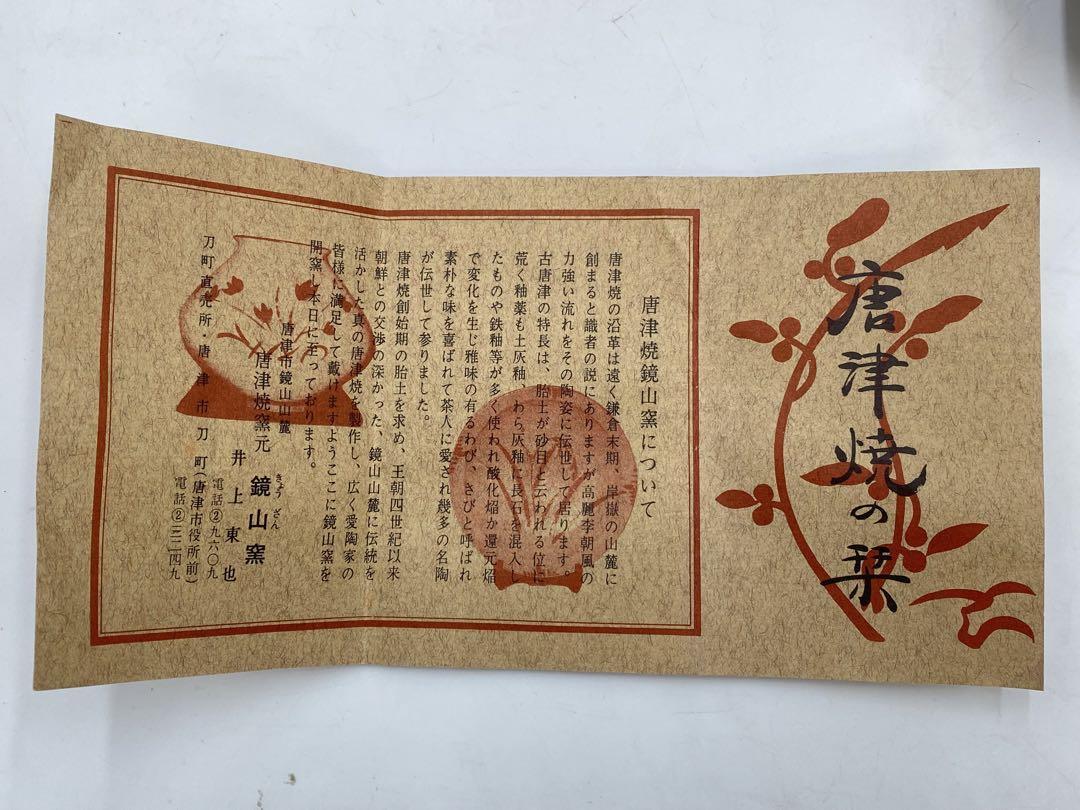 唐津焼の栞
唐津焼鏡山窯について
唐津焼の沿革は遠く鎌倉末期、岸嶽の山麓に
創まると識者の説にありますが高麗李朝風の
力強い流れをその陶姿に伝世して居ります。
古唐津の特長は、胎土が砂目と云われる位に
荒く釉薬も土灰釉、わら灰釉に長石を混入し
たものや鉄釉等が多く使われ酸化焰か還元焰
で変化を生じ雅味の有るわび、さびと呼ばれ
素朴な味を喜ばれて茶人に愛され幾多の名陶
が伝世して参りました。
唐津焼創始期の胎土を求め、王朝四世紀以来
朝鮮との交渉の深かった、鏡山山麓に伝統を
活かした真の唐津焼を製作し、広く愛陶家の
皆様に満足して戴けますようここに鏡山窯を
開窯し本日に至っております。
唐津市鏡山山麓
唐津焼窯元 鏡山窯
きょうざん
井上東也
電話②九六〇九
刀町直売所・唐津市刀町(唐津市役所前)
電話②三二四九